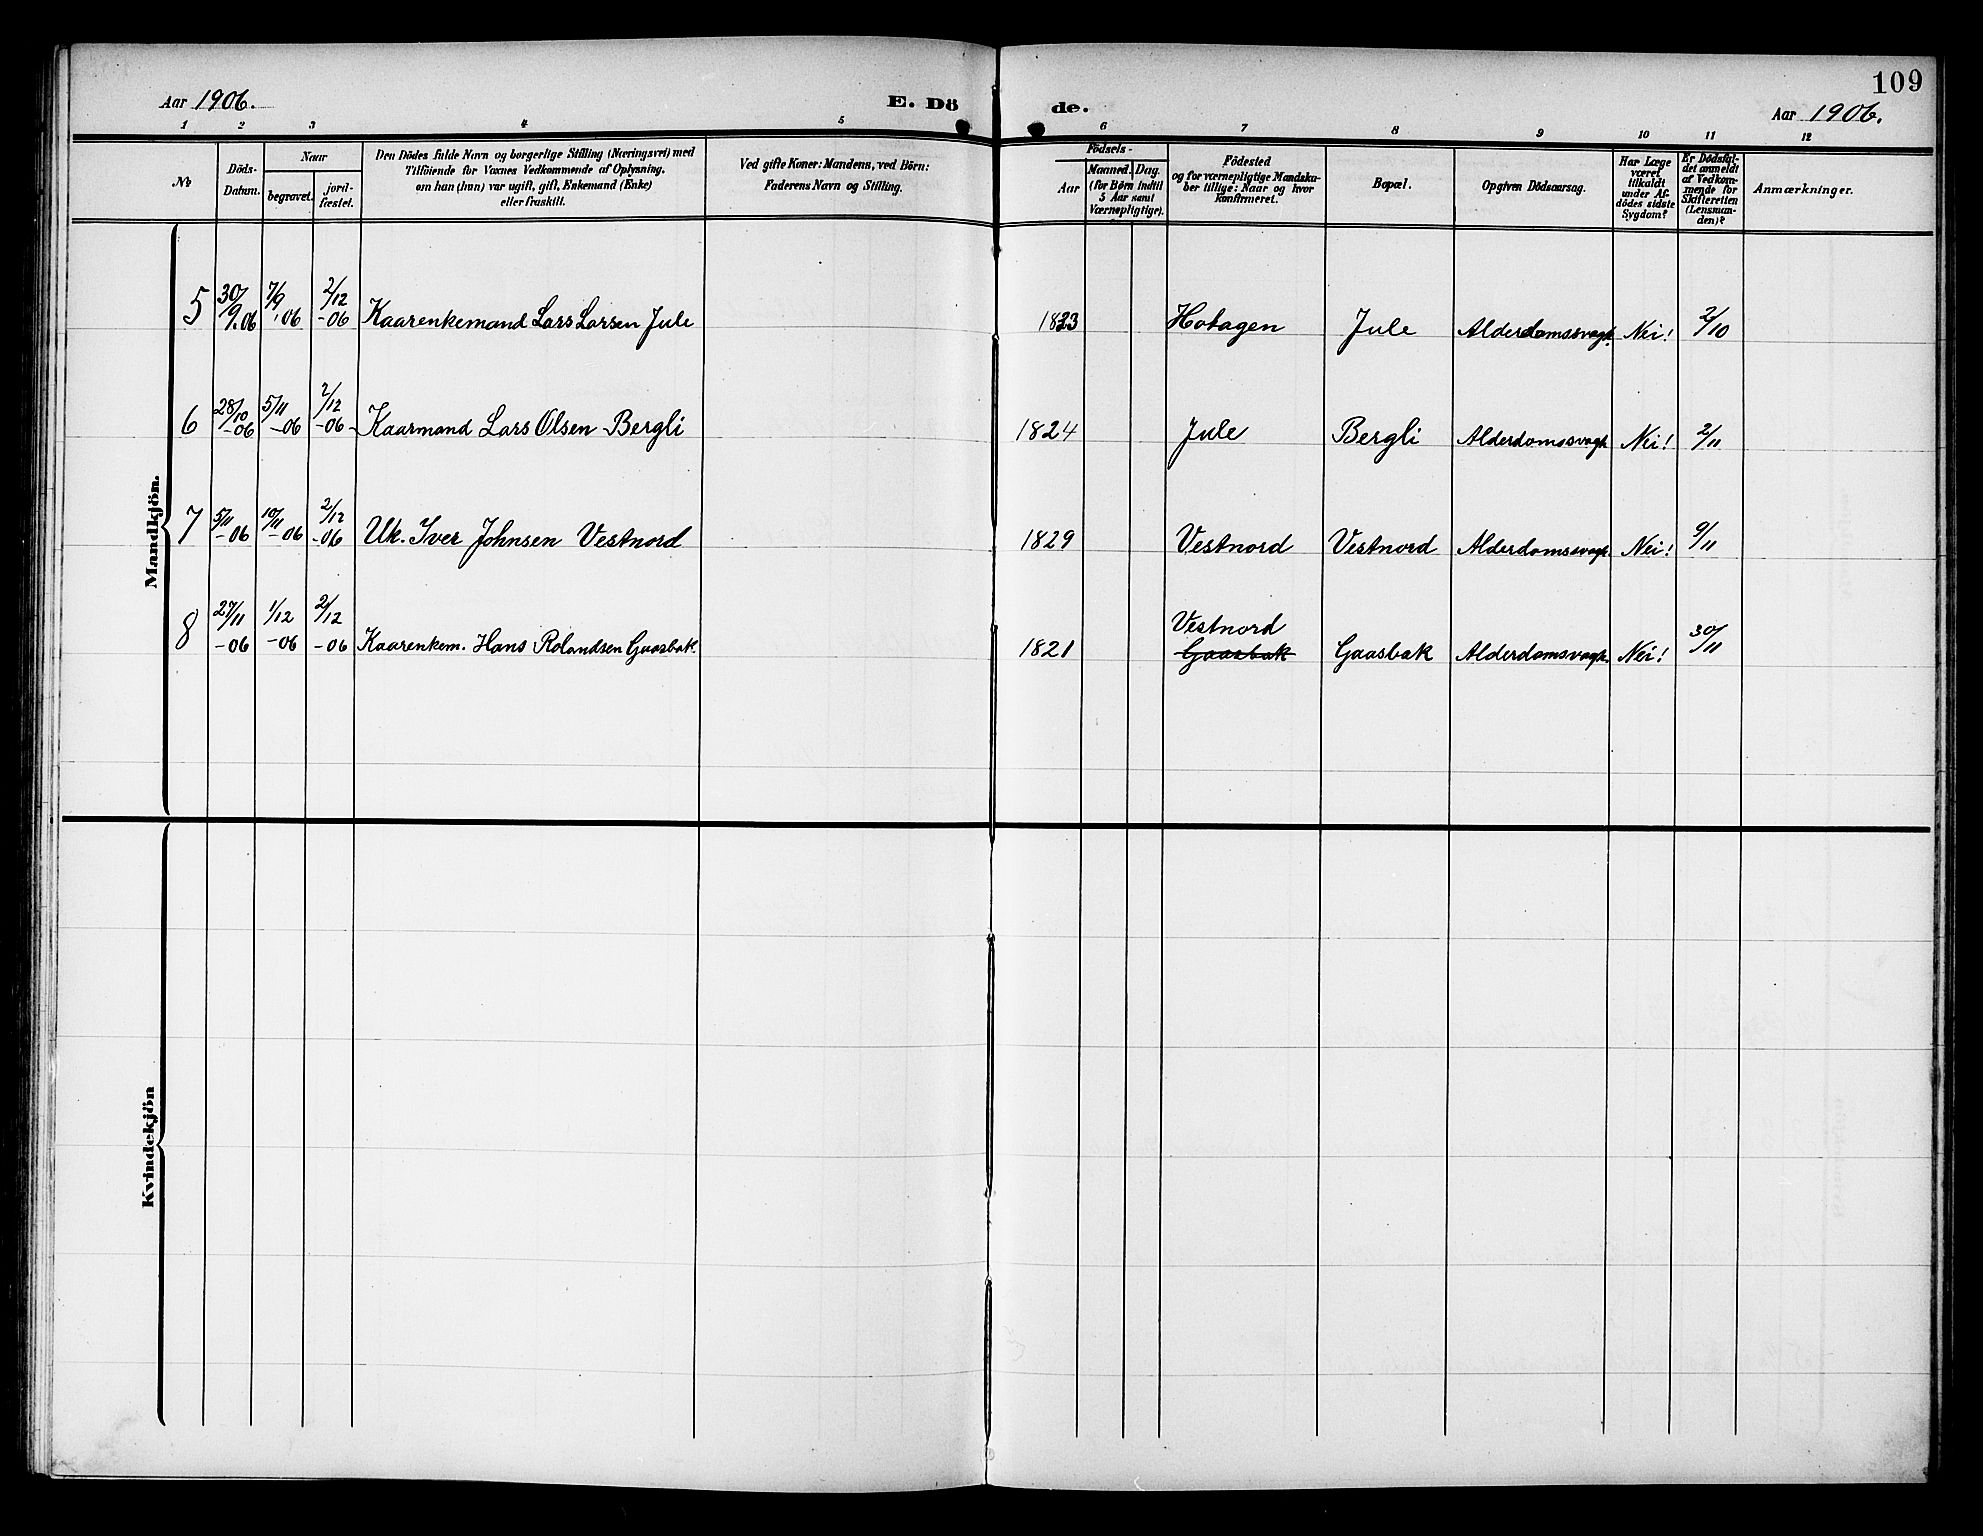 109
Aar 1906.
E. Dö
de.
Aar 1906.
1 2 3 4 5 6 7 8 9 10 11 12
No
Döds-
Datum.
Naar
begravet.
jord-
fæstet.
Den Dödes fulde Navn og borgerlige Stilling (Næringsvei) med
Tilföiende for Voxnes Vedkommende af Oplysning,
om han (hun) var ugift, gift, Enkemand (Enke)
eller fraskilt.
Ved gifte Koner: Mandens, ved Börn:
Faderens Navn og Stilling.
Födsels-
Aar
Maaned. Dag.
(for Börn indtil
5 Aar samt
Værnepligtige).
Födested
og for værnepligtige Mandska-
ber tillige: Naar og hvor
konfirmeret.
Bopæl.
Opgiven Dödsaarsag.
Har Læge
været
tilkaldt
under Af-
dödes sidste
Sygdom?
Er Dödsfal-
det anmeldt
af Vedkom-
mende for
Skifteretten
(Lensman-
den)?
Anmærkninger.
Mandkjön.
5 30/9.06 7/9 06 2/12 -06 Kaarenkemand Lars Larsen Jule 1823 Hotagen Jule Alderdomssvagh. Nei! 2/10
6 28/10 -06 5/11 -06 2/12 -06 Kaarmand Lars Olsen Bergli 1824 Jule Bergli Alderdomssvagh Nei! 2/11
7 5/11 -06 10/11 -06 2/12 -06 Uk. Iver Johnsen Vestnord 1829 Vestnord Vestnord Alderdomssvagh. Nei! 9/11
8 27/11 -06 1/12 -06 2/12 -06 Kaarenkem. Hans Rolandsen Gaasbak. 1821 Vestnord Gaasbak Gaasbak Alderdomsvagh. Nei! 30/11
Kvindekjön